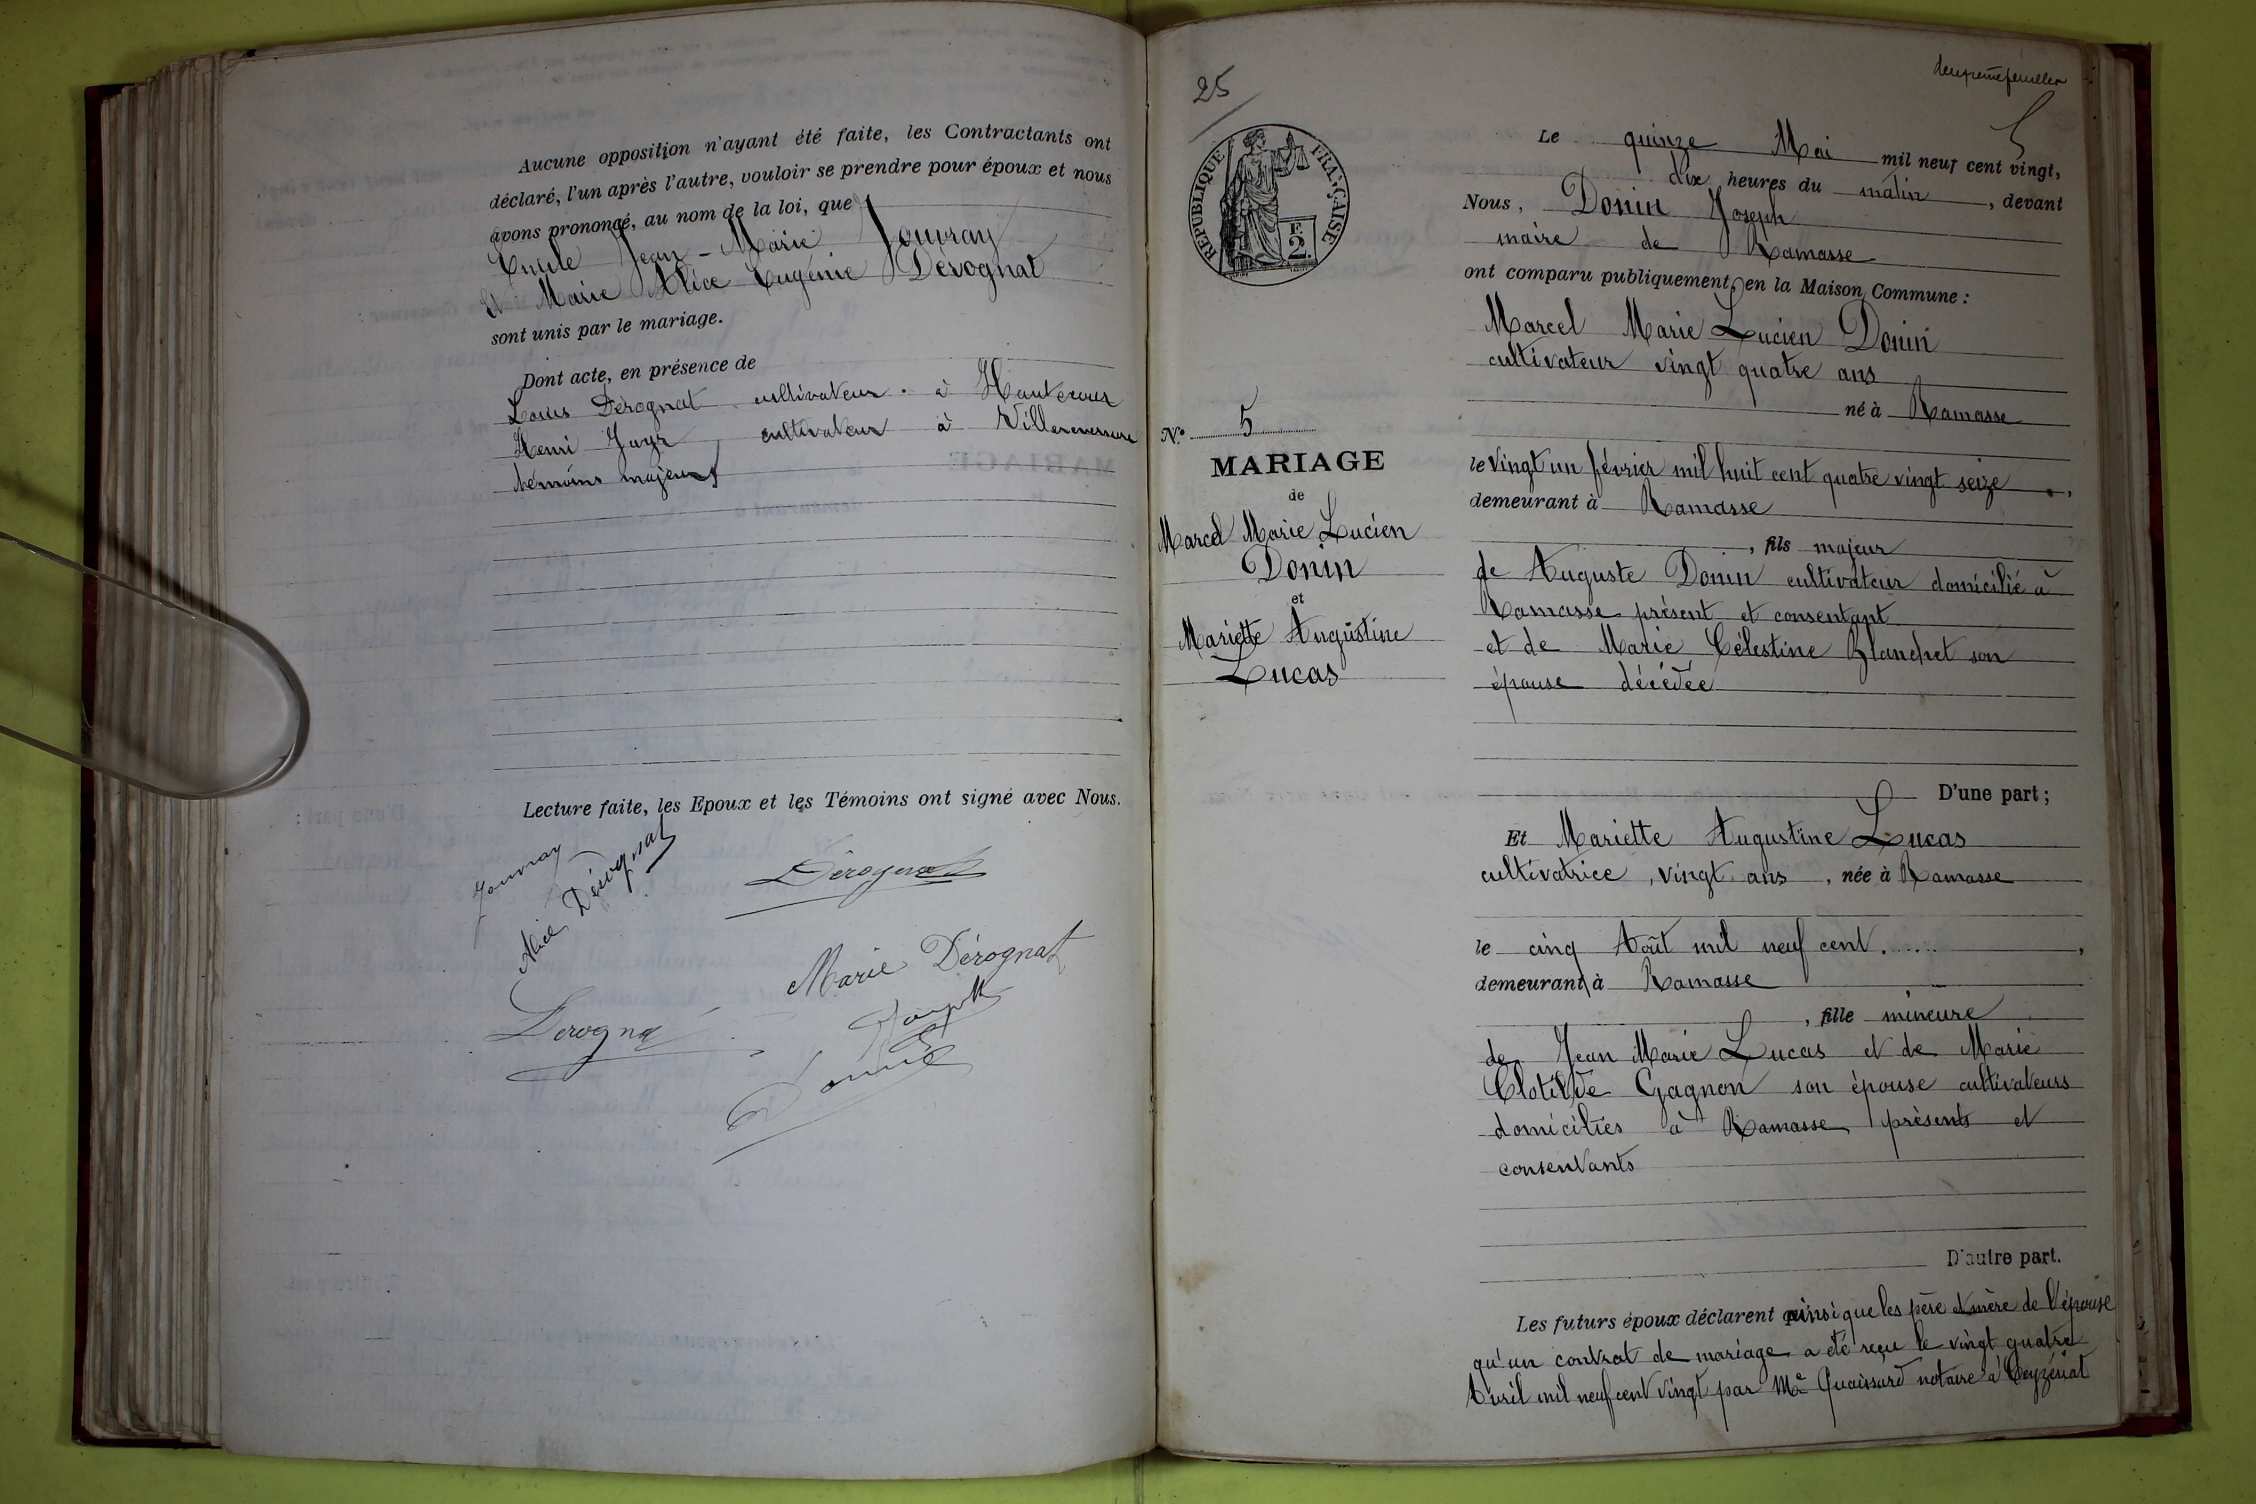 Aucune opposition n'ayant été faite, les Contractants ont
déclaré, l'un après l'autre, vouloir se prendre pour époux et nous
avons prononcé, au nom de la loi, que
Emile Jean-Marie Jouvray
et Marie Alice Eugénie Dérognat
sont unis par le mariage.
Dont acte, en présence de
Louis Dérognat cultivateur à Hautecour
Henri Jayr, cultivateur à Villereversure
témoins majeurs
Lecture faite, les Epoux et les Témoins ont signé avec Nous.
Jouvray
Alice Dérognat
Dérognat
Marie Dérognat
Dérognat
Donin
25
REPUBLIQUE FRANÇAISE
2
N° 5
MARIAGE
de
Marcel Marie Lucien
Donin
et
Mariette Augustine
Lucas
5
Le quinze Mai mil neuf cent vingt,
dix heures du matin, devant
Nous, Donin Joseph
maire de Ramasse
ont comparu publiquement en la Maison Commune :
Marcel Marie Lucien Donin
cultivateur vingt quatre ans
né à Ramasse
le vingt un février mil huit cent quatre vingt seize,
demeurant à Ramasse
, fils majeur
de Auguste Donin cultivateur domicilié à
Ramasse présent et consentant
et de Marie Célestine Blanchet son
épouse décédée
D'une part ;
Et Mariette Augustine Lucas
cultivatrice, vingt ans, née à Ramasse
le cinq Août mil neuf cent......,
demeurant à Ramasse
, fille mineure
de Jean Marie Lucas et de Marie
Clotilde Gagnon son épouse cultivateurs
domiciliés à Ramasse présents et
consentants
D'autre part.
Les futurs époux déclarent ainsi que les père et mère de l'épouse
qu'un contrat de mariage a été reçu le vingt quatre
Avril mil neuf cent vingt par Me Quaissard notaire à Ceyzériat